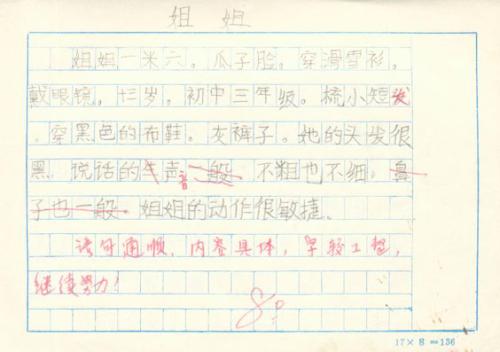 姐姐
姐姐一米六。瓜子脸。穿滑雪衫。
戴眼镜，十三岁，初中三年级。梳小短发
。穿黑色的布鞋。灰裤子。她的头发很
黑 说话的声音一般 不粗也不细。鼻
子也一般。姐姐的动作很敏捷。
语句通顺，内容具体，字较工整，
继续努力！
80
17×8=136